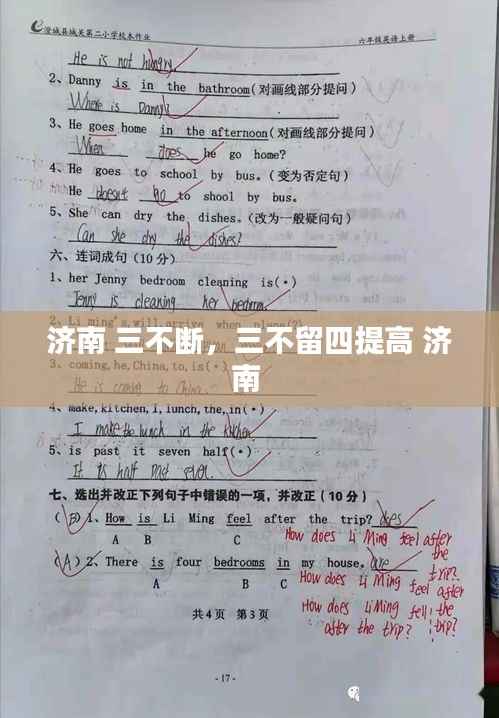 澄城县城关第二小学校本作业 六年级英语上册
He is not hungry
2、Danny is in the bathroom(对画线部分提问)
Where is Danny?
3、He goes home in the afternoon(对画线部分提问)
When does he go home?
4、He goes to school by bus.(变为否定句)
He doesn't go to shool by bus.
5、She can dry the dishes.(改为一般疑问句)
Can she dry the dishes?
六、连词成句(10分)
1、her Jenny bedroom cleaning is(.)
Jenny is cleaning her bedroom.
2、Li ming's,will,arrive,when,plane(?)
济南 三不断， 三不留四提高 济
南
3、coming,he,China,to,is(.)
He is coming to China.
4、make,kitchen,I,lunch,the,in(.)
I make the lunch in the kitchen.
5、is past it seven half(.)
It is half past seven.
七、选出并改正下列句子中错误的一项，并改正(10分)
(B)1、How is Li Ming feel after the trip? does
A B C
How does Li Ming feel after the trip?
(A)2、There is four bedrooms in my house. are
A B C
How does Li Ming feel after the trip?
How does Li Ming fell after the trip?
共4页 第3页
-17-